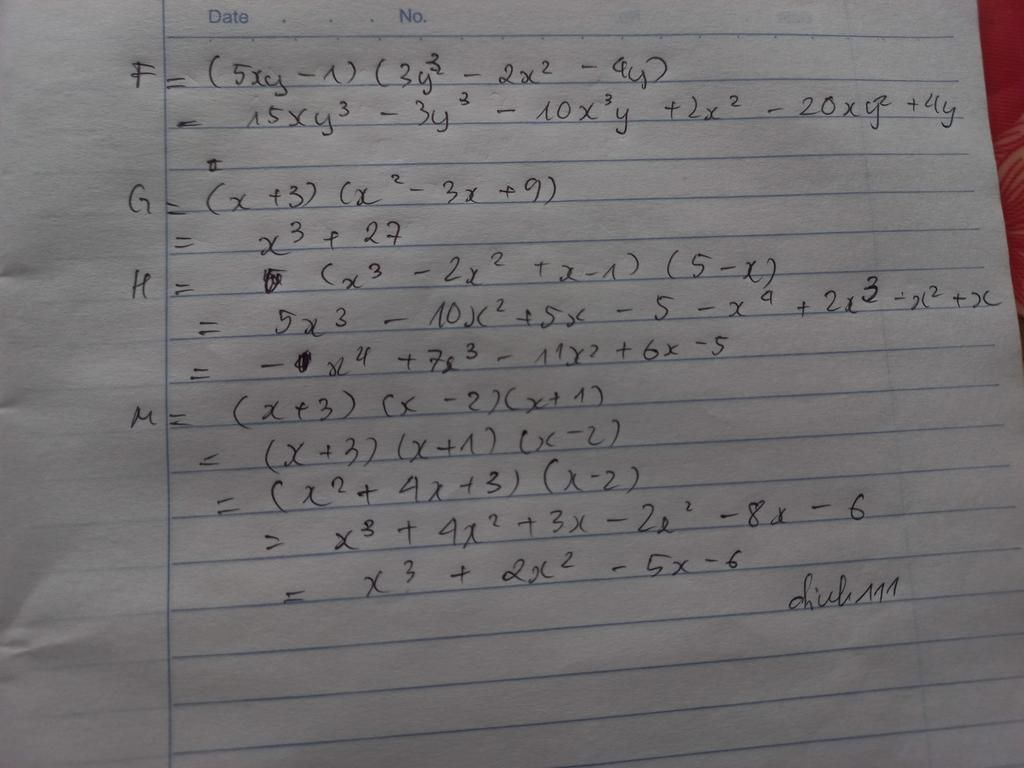 Date . . . No.
F = (5xy - 1) (3y³ - 2x² - 4y)
= 15xy³ - 3y³ - 10x³y + 2x² - 20xy² + 4y
G = (x + 3) (x² - 3x + 9)
= x³ + 27
H = (x³ - 2x² + x - 1) (5 - x)
= 5x³ - 10x² + 5x - 5 - x⁴ + 2x³ - x² + x
= - x⁴ + 7x³ - 11x² + 6x - 5
M = (x + 3) (x - 2)(x + 1)
= (x + 3) (x + 1) (x - 2)
= (x² + 4x + 3) (x - 2)
= x³ + 4x² + 3x - 2x² - 8x - 6
= x³ + 2x² - 5x - 6